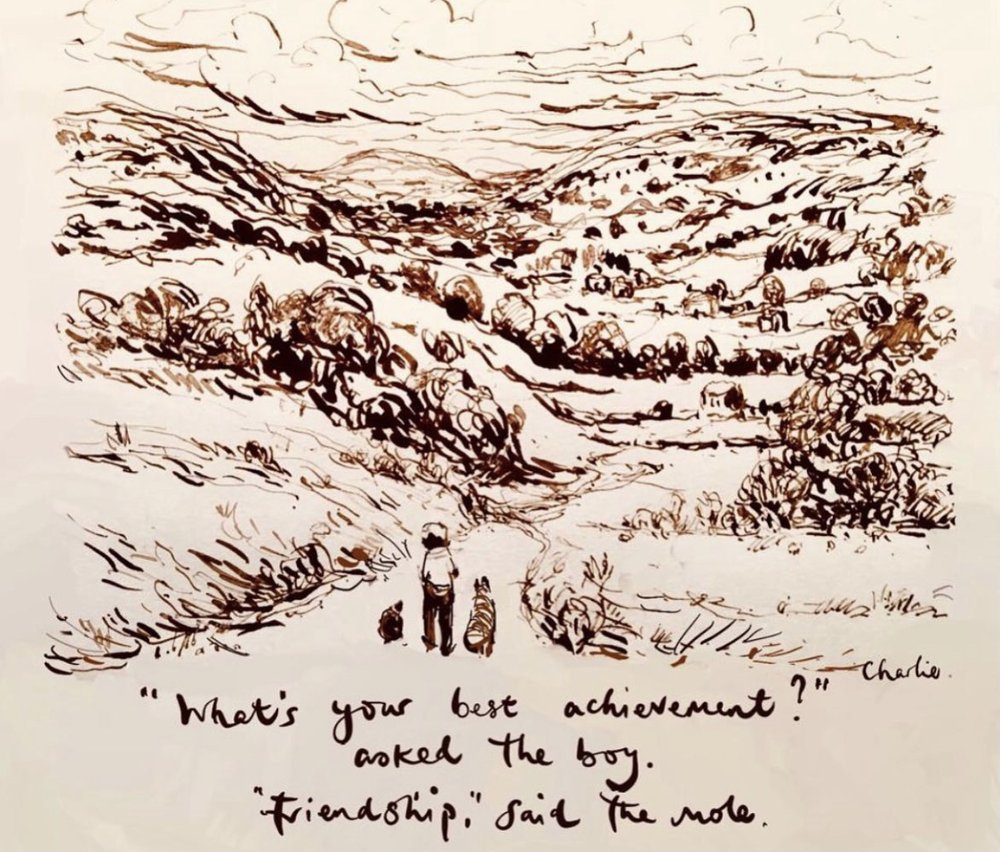 Charlie.
"What's your best achievement?"
asked the boy.
"Friendship," said the mole.